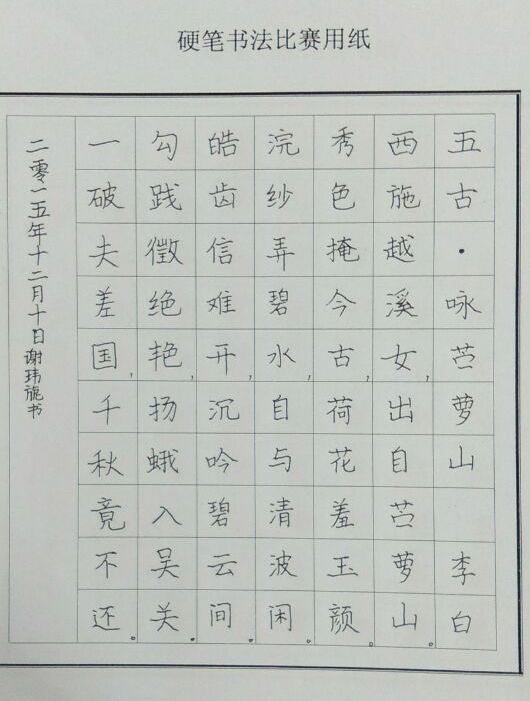 硬笔书法比赛用纸
五古·咏苎萝山 李白
西施越溪女,出自苎萝山。
秀色掩今古,荷花羞玉颜。
浣纱弄碧水,自与清波闲。
皓齿信难开,沉吟碧云间。
勾践徵绝艳,扬蛾入吴关。
一破夫差国,千秋竟不还。
二零一五年十二月十日谢玮旎书